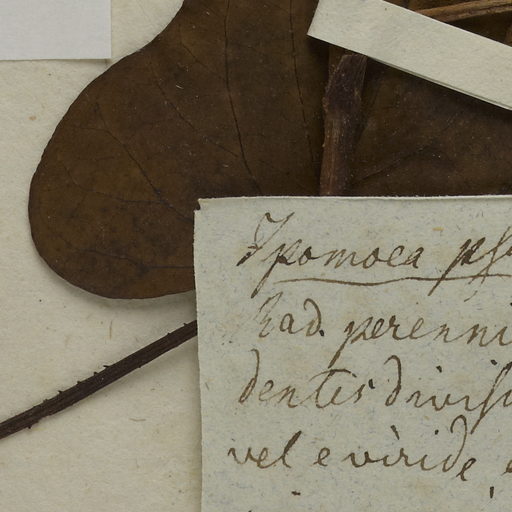 Ipomoea
Rad. perenni
dentis divis
vel e viride